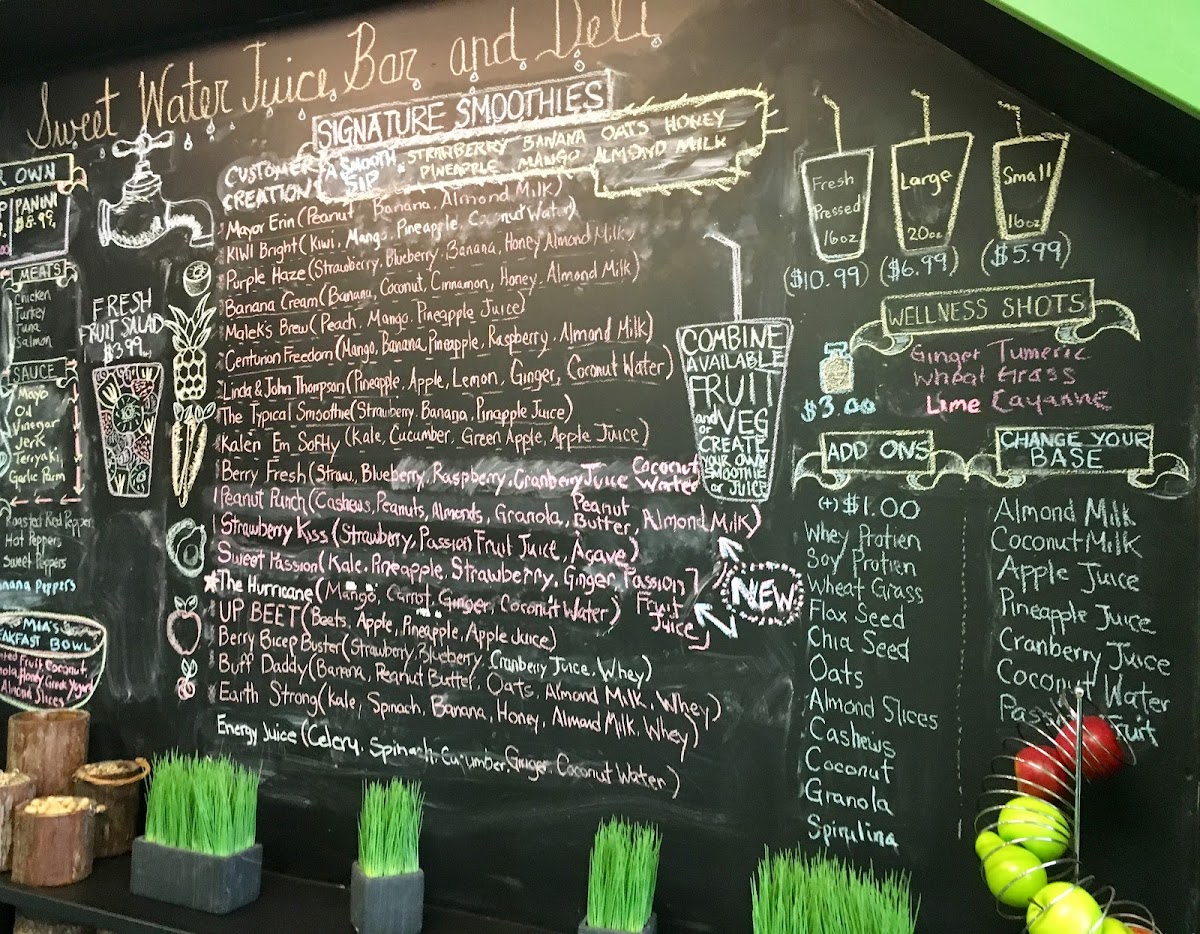 Sweet Water Juice Bar and Deli
SIGNATURE SMOOTHIES
CUSTOMER
CREATION
A SMOOTH
SIP
= STRAWBERRY BANANA OATS HONEY
PINEAPPLE MANGO ALMOND MILK
Mayor Erin (Peanut Banana, Almond Milk)
KIWI Bright (Kiwi, Mango, Pineapple, Coconut Water)
Purple Haze (Strawberry, Blueberry, Banana, Honey Almond Milk)
Banana Cream (Banana, Coconut, Cinnamon, Honey, Almond Milk)
Malek's Brew (Peach, Mango, Pineapple Juice)
Centurion Freedom (Mango, Banana, Pineapple, Raspberry, Almond Milk)
Linda & John Thompson (Pineapple, Apple, Lemon, Ginger, Coconut Water)
The Typical Smoothie (Strawberry, Banana, Pinapple Juice)
Kale'n Em Softly (Kale, Cucumber, Green Apple, Apple Juice)
Berry Fresh (Straw, Blueberry, Raspberry, Cranberry Juice Coconut Water
Peanut Punch (Cashews, Peanuts, Almonds, Granola, Peanut Butter, Almond Milk)
Strawberry Kiss (Strawberry, Passion Fruit Juice, Agave)
Sweet Passion (Kale, Pineapple, Strawberry, Ginger, Passion Fruit Juice)
*The Hurricane (Mango, Carrot, Ginger, Coconut Water)
UP BEET (Beets, Apple, Pineapple, Apple Juice)
Berry Bicep Buster (Strawberry, Blueberry, Cranberry Juice, Whey)
Buff Daddy (Banana, Peanut Butter, Oats, Almond Milk, Whey)
Earth Strong (Kale, Spinach, Banana, Honey, Almond Milk, Whey)
Energy Juice (Celery, Spinach, Cucumber, Ginger, Coconut Water)
NEW
COMBINE
AVAILABLE
FRUIT
and VEG
or
CREATE
YOUR OWN
SMOOTHIE
or JUICE
R OWN
PANINI
$8.99
MEATS
Chicken
Turkey
Tuna
Salmon
SAUCE
Mayo
Oil
Vinegar
Jerk
Teriyaki
Garlic Parm
Roasted Red Pepper
Hot Peppers
Sweet Peppers
nana Peppers
MIA'S
EAKFAST BOWL
Fruit, Coconut,
nola, Honey, Greek Yogurt
Almond Slices
FRESH
FRUIT SALAD
$3.99
Fresh
Pressed
16oz
($10.99)
Large
20oz
($6.99)
Small
16oz
($5.99)
WELLNESS SHOTS
$3.00
Ginger Tumeric
Wheat Grass
Lime Cayanne
ADD ONS
(+) $1.00
Whey Protien
Soy Protien
Wheat Grass
Flax Seed
Chia Seed
Oats
Almond Slices
Cashews
Coconut
Granola
Spirulina
CHANGE YOUR
BASE
Almond Milk
Coconut Milk
Apple Juice
Pineapple Juice
Cranberry Juice
Coconut Water